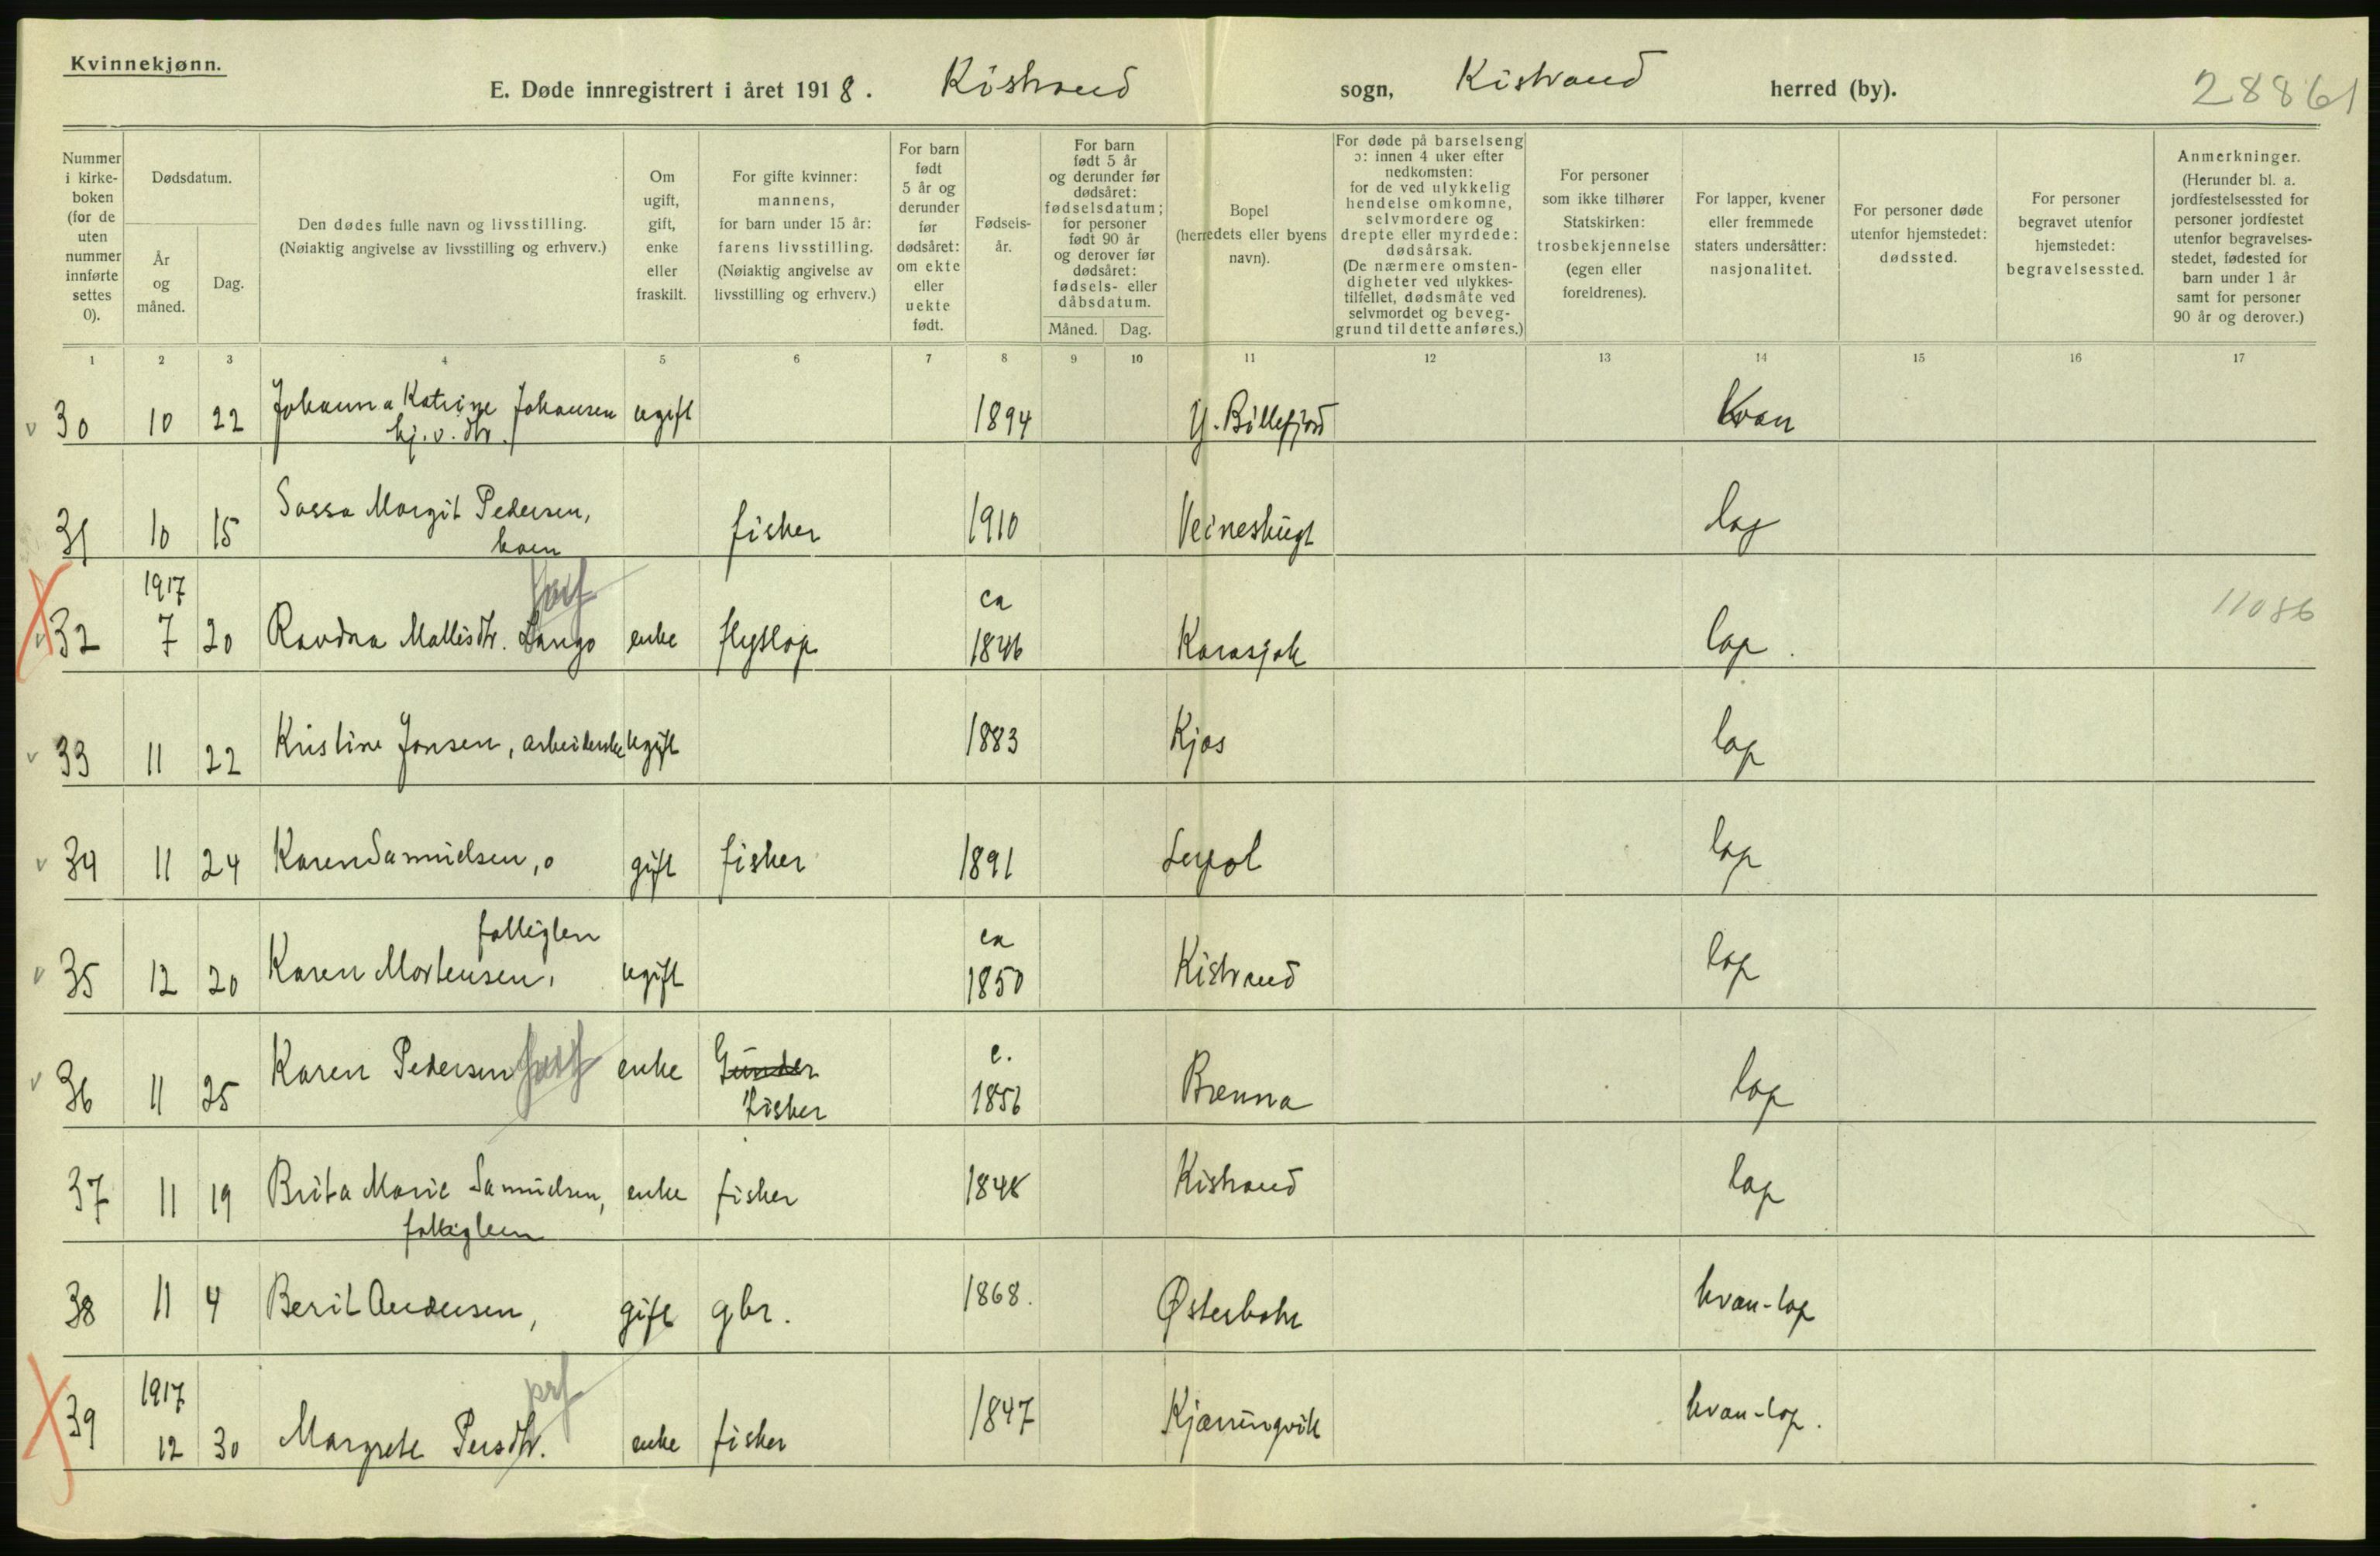 Kvinnekjønn.
E. Døde innregistrert i året 1918. Kistrand sogn, Kistrand herred (by). 28861
Nummer i kirkeboken (for de uten nummer innførte settes 0).
Dødsdatum.
År og måned.
Dag.
Den dødes fulle navn og livsstilling.
(Nøiaktig angivelse av livsstilling og erhverv.)
Om ugift, gift, enke eller fraskilt.
For gifte kvinner: mannens, for barn under 15 år: farens livsstilling. (Nøiaktig angivelse av livsstilling og erhverv.)
For barn født 5 år og derunder før dødsåret: om ekte eller uekte født.
Fødselsår.
For barn født 5 år og derunder før dødsåret: fødselsdatum; for personer født 90 år og derover før dødsåret: fødsels- eller dåbsdatum.
Måned. Dag.
Bopel (herredets eller byens navn).
For døde på barselseng ɔ: innen 4 uker efter nedkomsten: for de ved ulykkelig hendelse omkomne, selvmordere og drepte eller myrdede: dødsårsak. (De nærmere omstendigheter ved ulykkestilfellet, dødsmåte ved selvmordet og beveggrund til dette anføres.)
For personer som ikke tilhører Statskirken: trosbekjennelse (egen eller foreldrenes).
For lapper, kvener eller fremmede staters undersåtter: nasjonalitet.
For personer døde utenfor hjemstedet: dødssted.
For personer begravet utenfor hjemstedet: begravelsessted.
Anmerkninger. (Herunder bl. a. jordfestelsessted for personer jordfestet utenfor begravelsesstedet, fødested for barn under 1 år samt for personer 90 år og derover.)
1 2 3 4 5 6 7 8 9 10 11 12 13 14 15 16 17
v 30 10 22 Johanna Katrine Johansen ugift 1894 Y. Billefjord Kvæn
hj. v. dtr.
31 10 15 Sassa Margit Pedersen, fisker 1910 Veinesbugt lap
barn
1917 ca
v 32 7 20 Ravdna Mallisdtr. enke flytlap 1846 Karasjok lap. 11086
v 33 11 22 Kristine Jonsen, arbeiderske ugift 1883 Kjæs lap
v 34 11 24 Karen Samuelsen, o gift fisker 1891 lap
fattiglem ca
v 35 12 20 Karen Mortensen, ugift 1850 Kistrand lap
v 36 11 25 Karen Pedersen enke c. 1856 Brenna lap
fisker
37 11 19 Brita Marie Samuelsen, enke fisker 1848 Kistrand lap
fattiglem
38 11 4 Berit Andersen, gift gbr. 1868. Østerbotn kvæn-lap
1917
39 12 30 Margrete Persdtr. enke fisker 1847 Kjærringvik kvæn-lap.